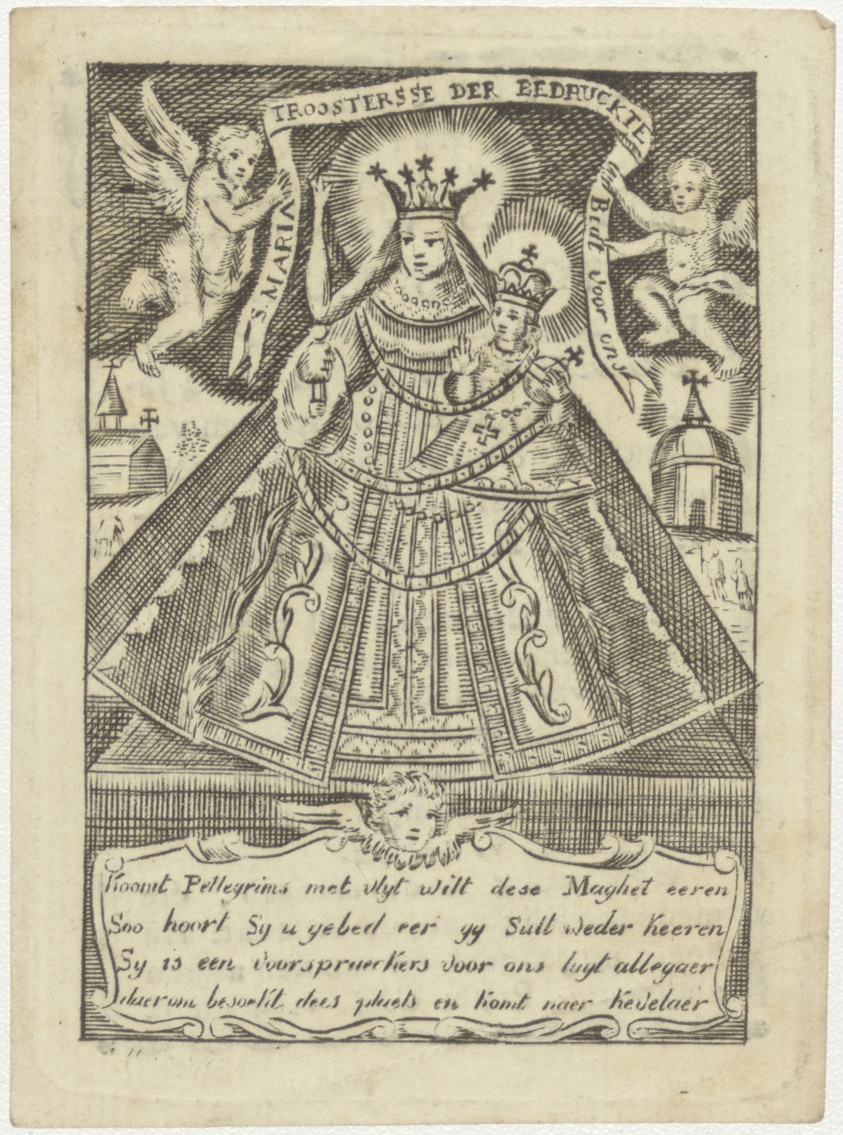 S. MARIA
TROOSTERSSE DER BEDRUCKTE
Bidt voor ons
Koomt Pellegrims met vlyt wilt dese Maghet eeren
Soo hoort Sy u gebed eer gy Sult weder keeren
Sy is een voorspraeckers voor ons luyt allegaer
daerom besoekt dees plaets en komt naer Kevelaer